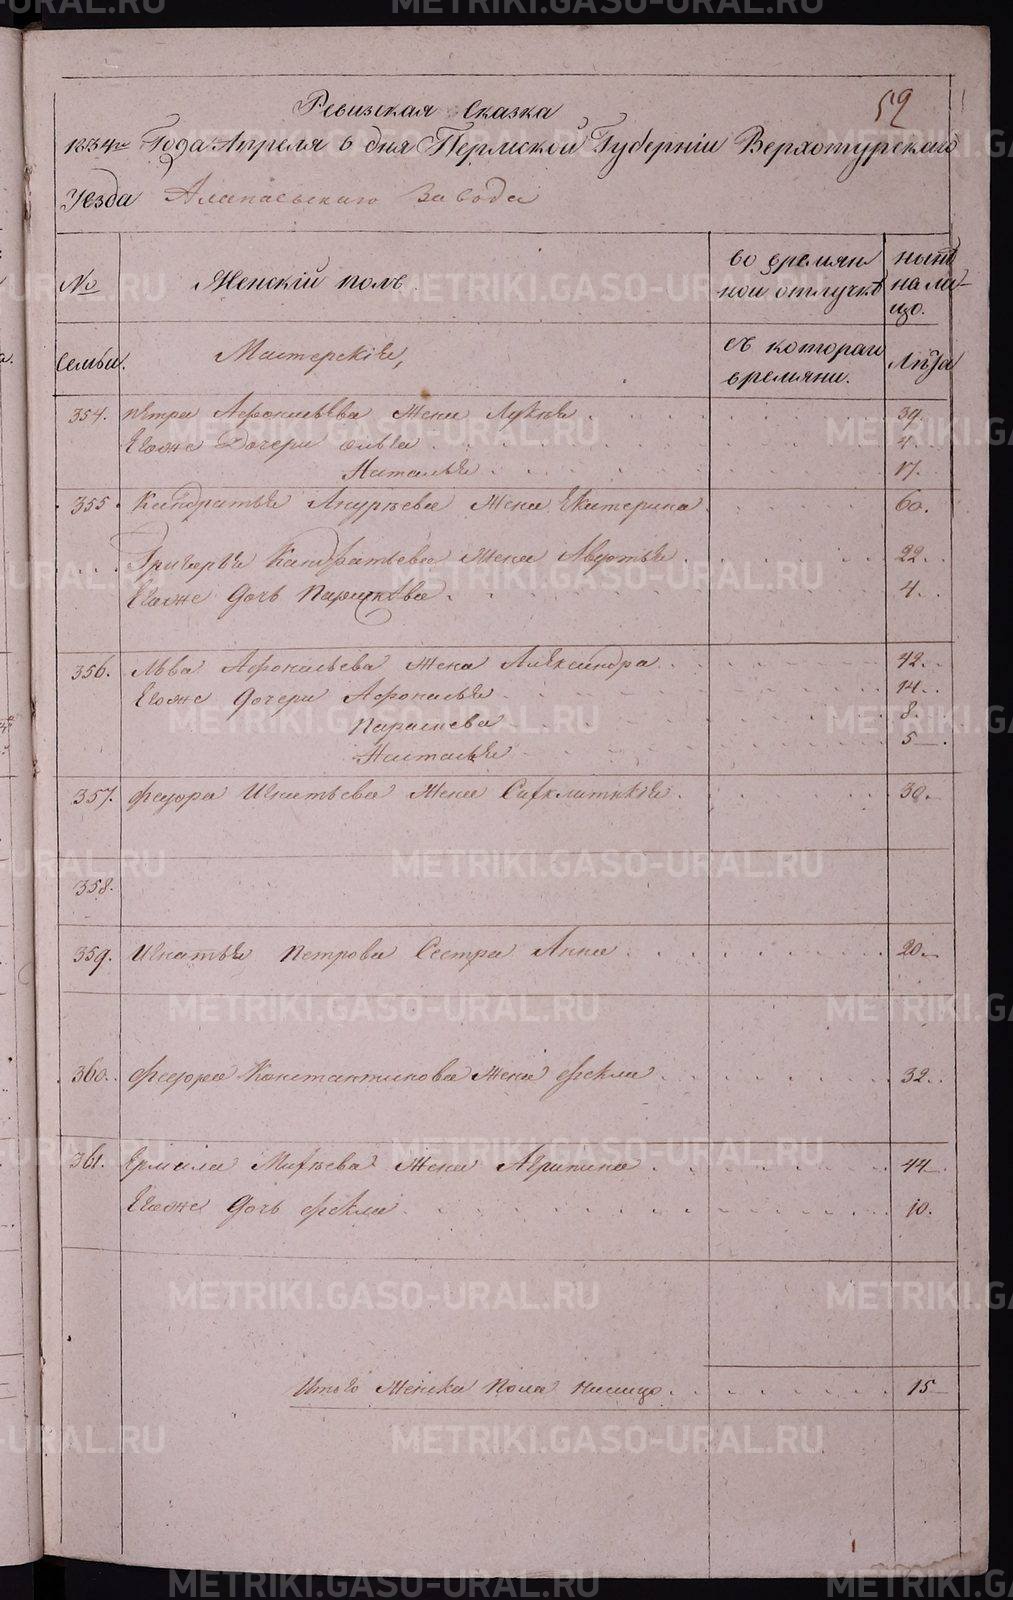 52
Ревизская Сказка
1834го Года Апреля 6 дня Пермской Губерніи Верхотурскаго
Уезда Алапаевскаго Завода
№ Женскій полъ во времян нынѣ
ной отлучкѣ на ли-
цо.
Семьи. Мастерскіе, съ котораги Лѣта
времяни.
354. Петра Афонасьева Жена 39.
Егоже Дочери 4
Наталья 17.
355. Кандратья Жена Екатерина 60.
Григорья Кандратьева Жена Авдотья 22.
Егоже Дочь Парасковья 4.
356. Льва Афонасьева Жена Александра 42.
Егоже Дочери Афонасья 14.
Параскева 8.
Настасья 5.
357. Федора Игнатьева Жена 30.
358.
359. Игнатья Петрова Сестра Анна 20.
360. Федора Константинова Жена Фекла 32.
361. Ермила Жена Агрипина 44.
Егоже Дочь Фекла 10.
Итого Женска Пола налицо 15
METRIKI.GASO-URAL.RU